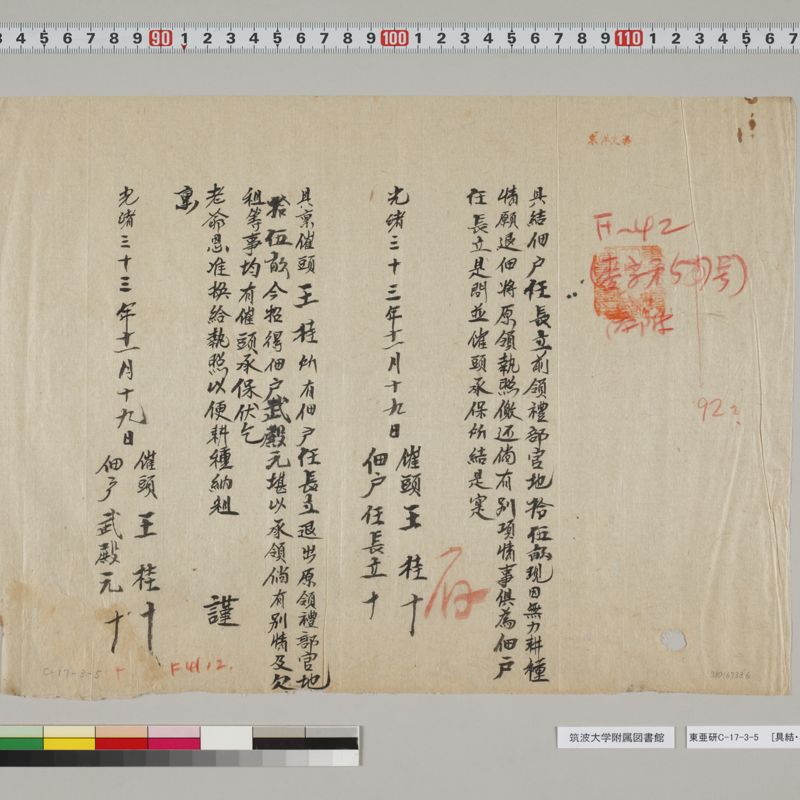 3 4 5 6 7 8 9 90 1 2 3 4 5 6 7 8 9 100 1 2 3 4 5 6 7 8 9 110 1 2 3 4 5 6 7
F-42
92
具結佃户任長立前領禮部官地拾伍畝現因無力耕種
情願退佃將原領執照繳还倘有别項情事俱為佃户
任長立是問並催頭承保所結是寔
光緒三十三年十一月十九日
催頭王桂十
佃户任長立十
具禀催頭王桂所有佃户任長立退出原領禮部官地
拾伍畝今招得佃户武殿元堪以承領倘有别情及欠
租等事均有催頭承保伏乞
老爺恩准换給執照以便耕種納租 謹
禀
光緒三十三年十一月十九日
催頭王桂十
佃户武殿元十
C-17-3-5
筑波大学附属図書館
東亜研C-17-3-5 [具結・